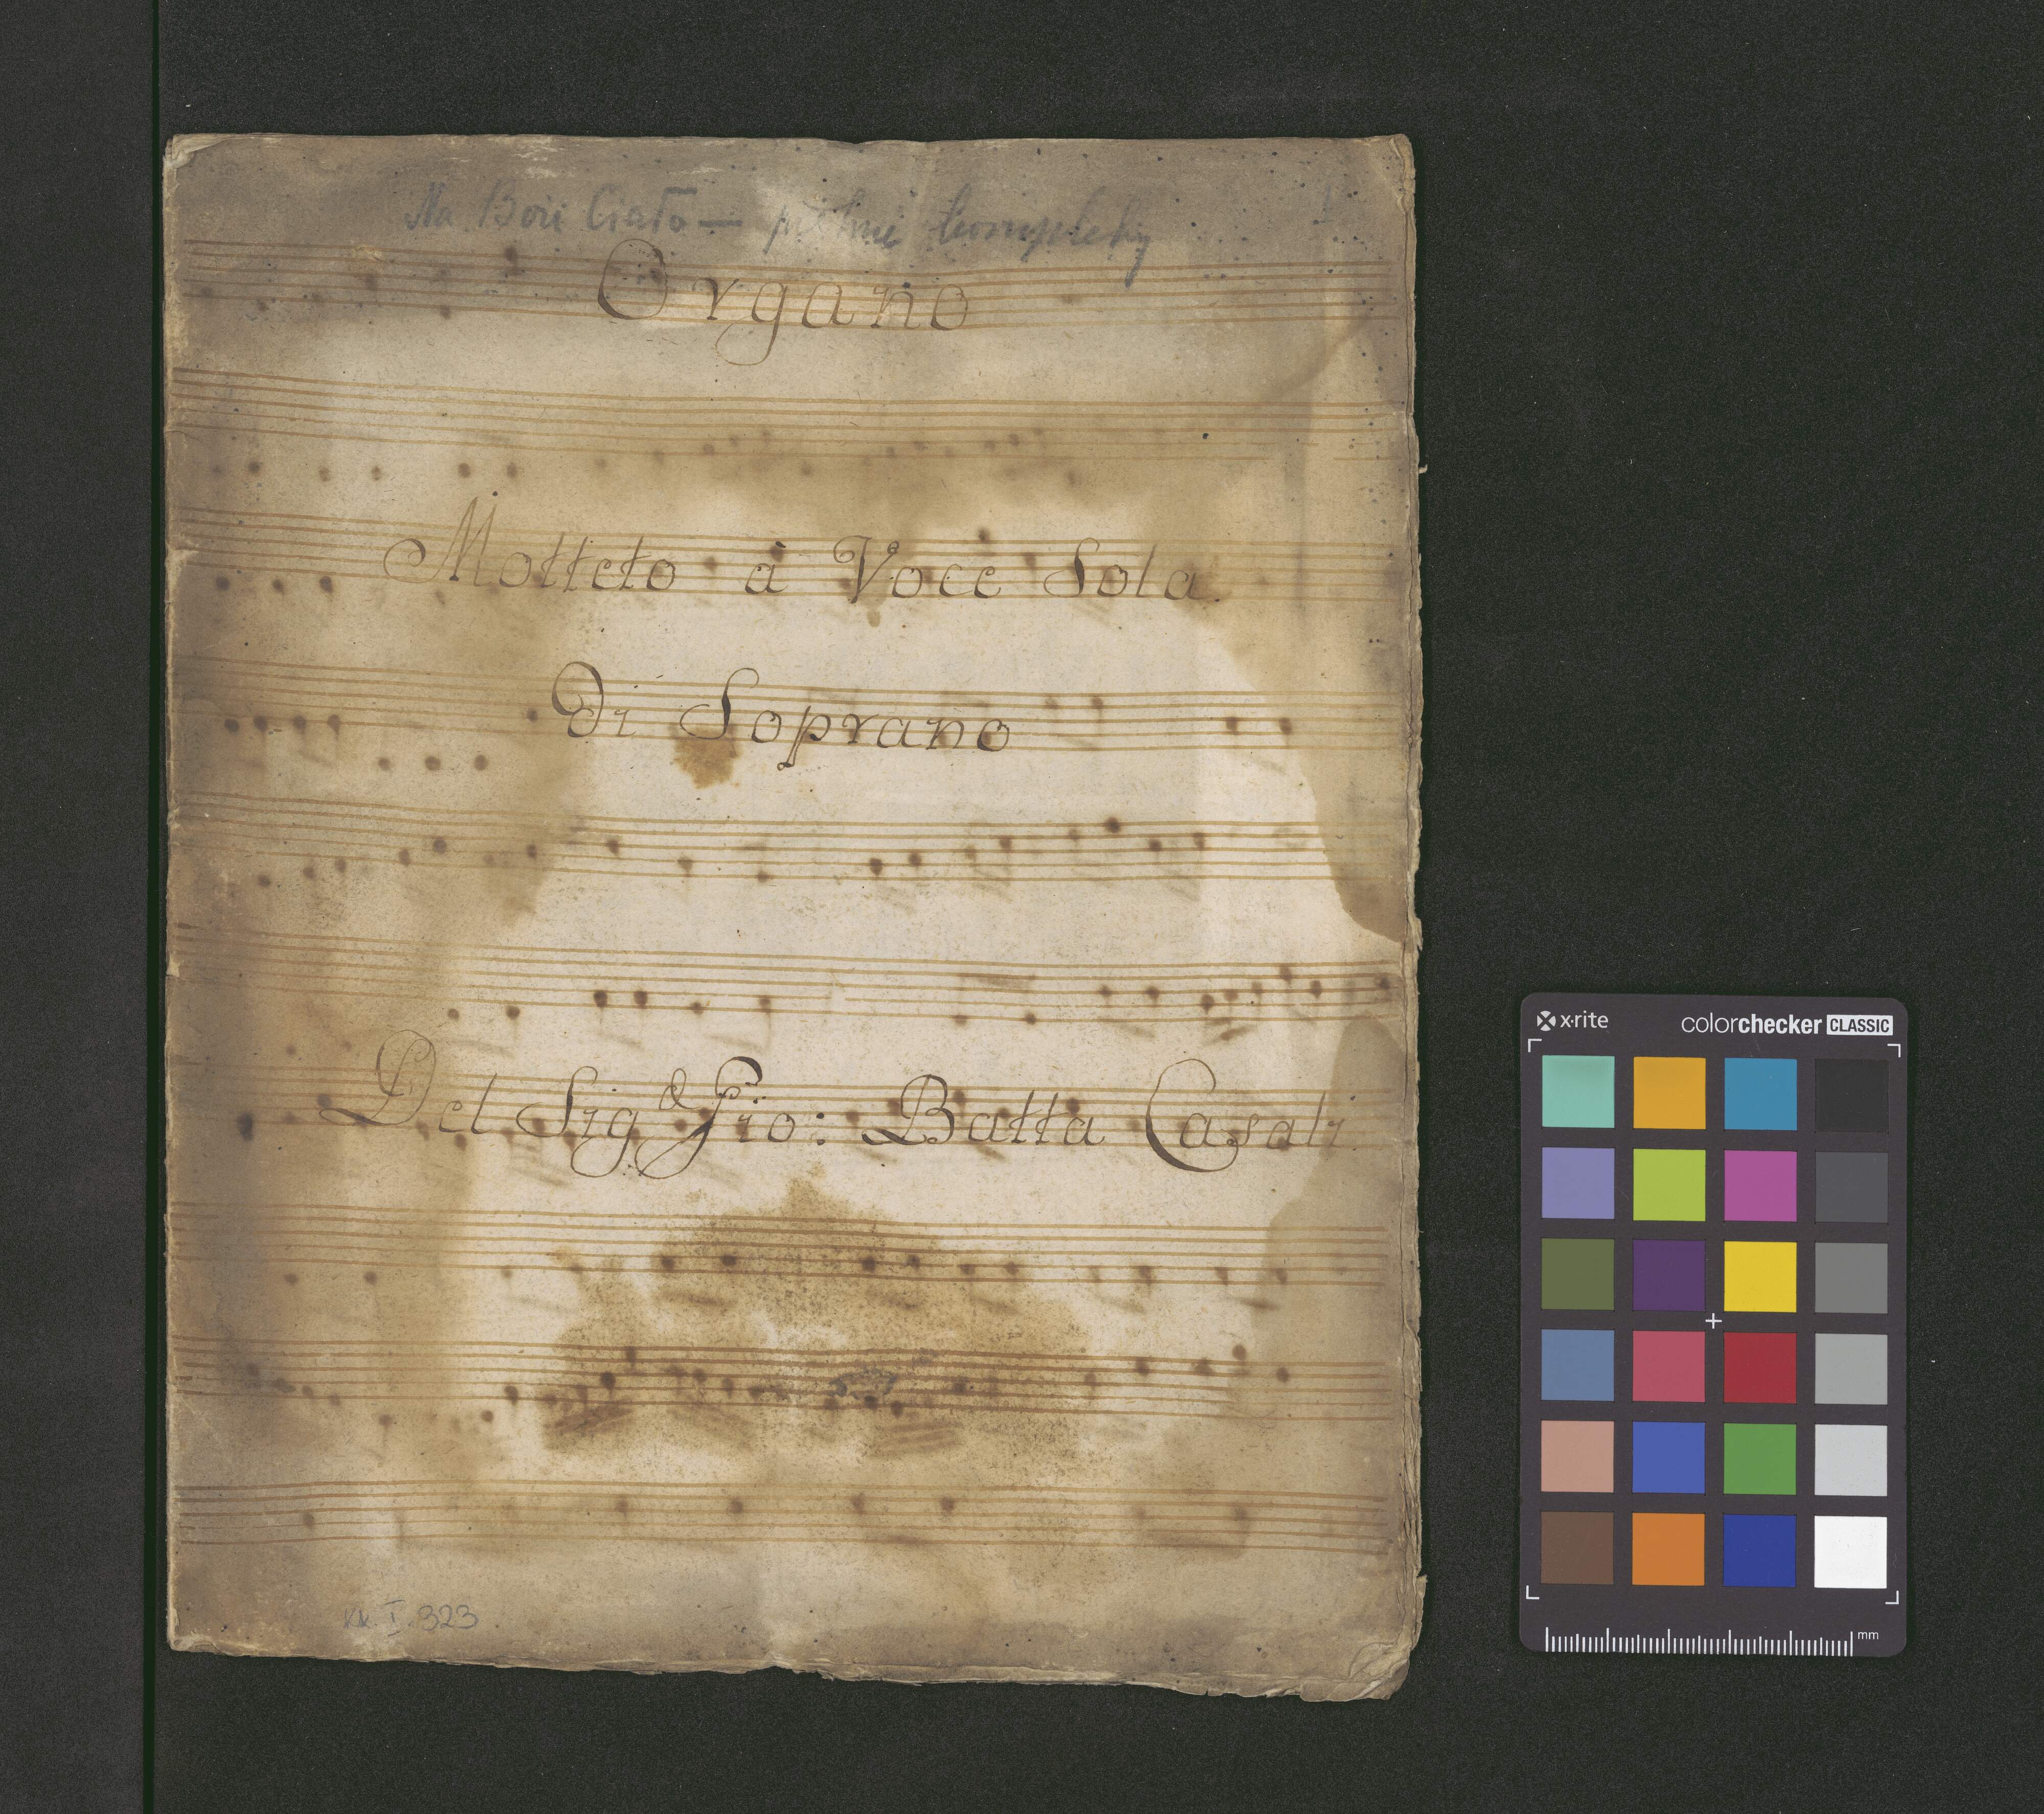 Na Boże Ciało — komplety
I
Organo
Motteto à Voce Sola
Di Soprano
Del Sig.r Gio: Batta Casali
KK. I. 323
x-rite
colorchecker CLASSIC
mm